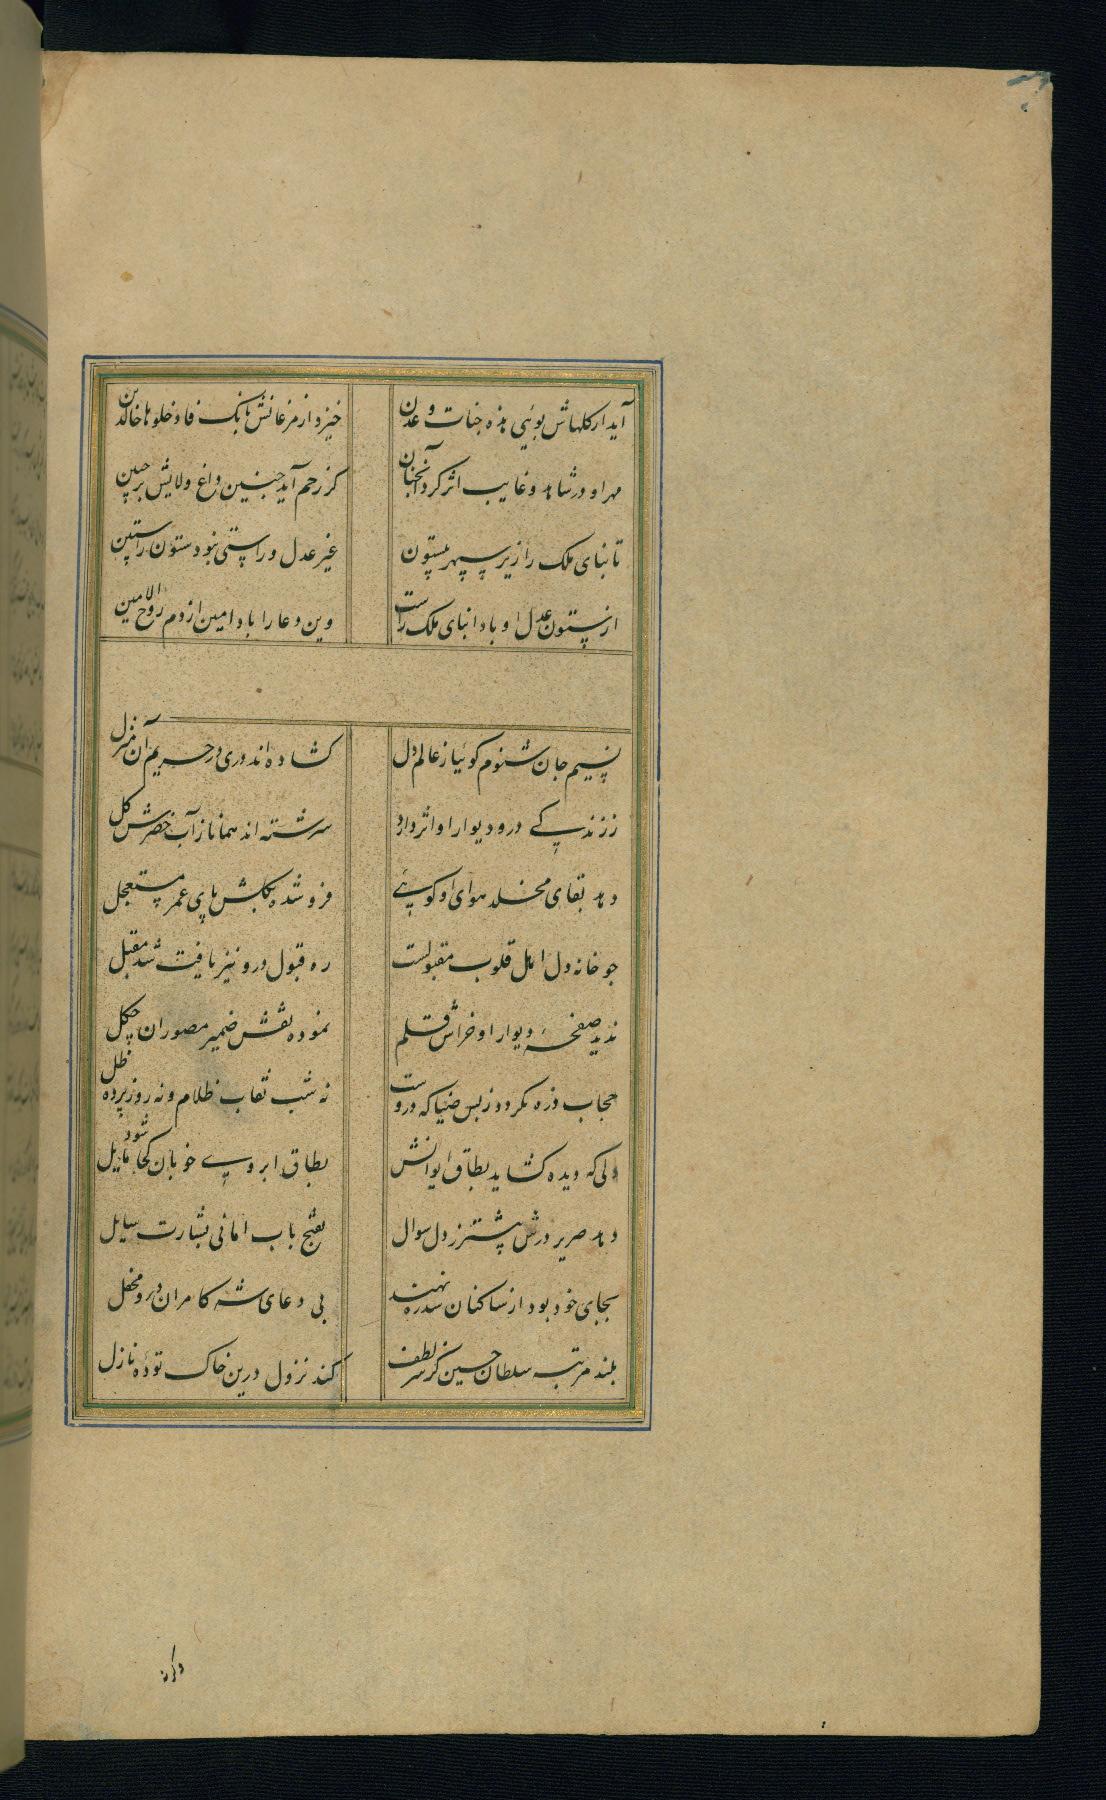 آید از کلهاش بوئی هذه جنات و عدن
خیزد از مرغانش بانک فادخلوها خالدین
مهر او در شاهد و غایب اثر کرد آنچنان
کز رحم آید جنین داغ ولایش بر جبین
تا بنای ملک را زیر سپهر بیستون
غیر عدل و راستی نبود ستون راستین
از ستون عدل او بادا بنای ملک راست
وین دعا را باد امین از دم روح الامین
نسیم جان شنوم کوئیا ز عالم دل
کشاده اند دری در حریم آن منزل
ز زندکی در و دیوار او اثر دارد
سرشته اند همانا ز آب خضرش کل
دهد بقای مخلد هوای او کوئی
فرو شده بکلش پای عمر مستعجل
چو خانه دل اهل قلوب مقبولست
ره قبول درو نیز یافت شد مقبل
ندید صفحهٔ دیوار او خراش قلم
نموده نقش ضمیر مصوران چکل
حجاب ذره نکردد ز بس ضیا که دروست
نه شب نقاب ظلام و نه روز پرده ظل
دلی که دیده کشاید بطاق ایوانش
بطاق ابروی خوبان کجا شود مایل
دهد صریر درش پیشتر ز دل سوال
بفتح باب امانی بشارت سایل
بجای خود بود ار ساکنان سدره نهند
پی دعای شه کامران درو محفل
بلند مرتبه سلطان حسین کز سر لطف
کند نزول درین خاک توده نازل